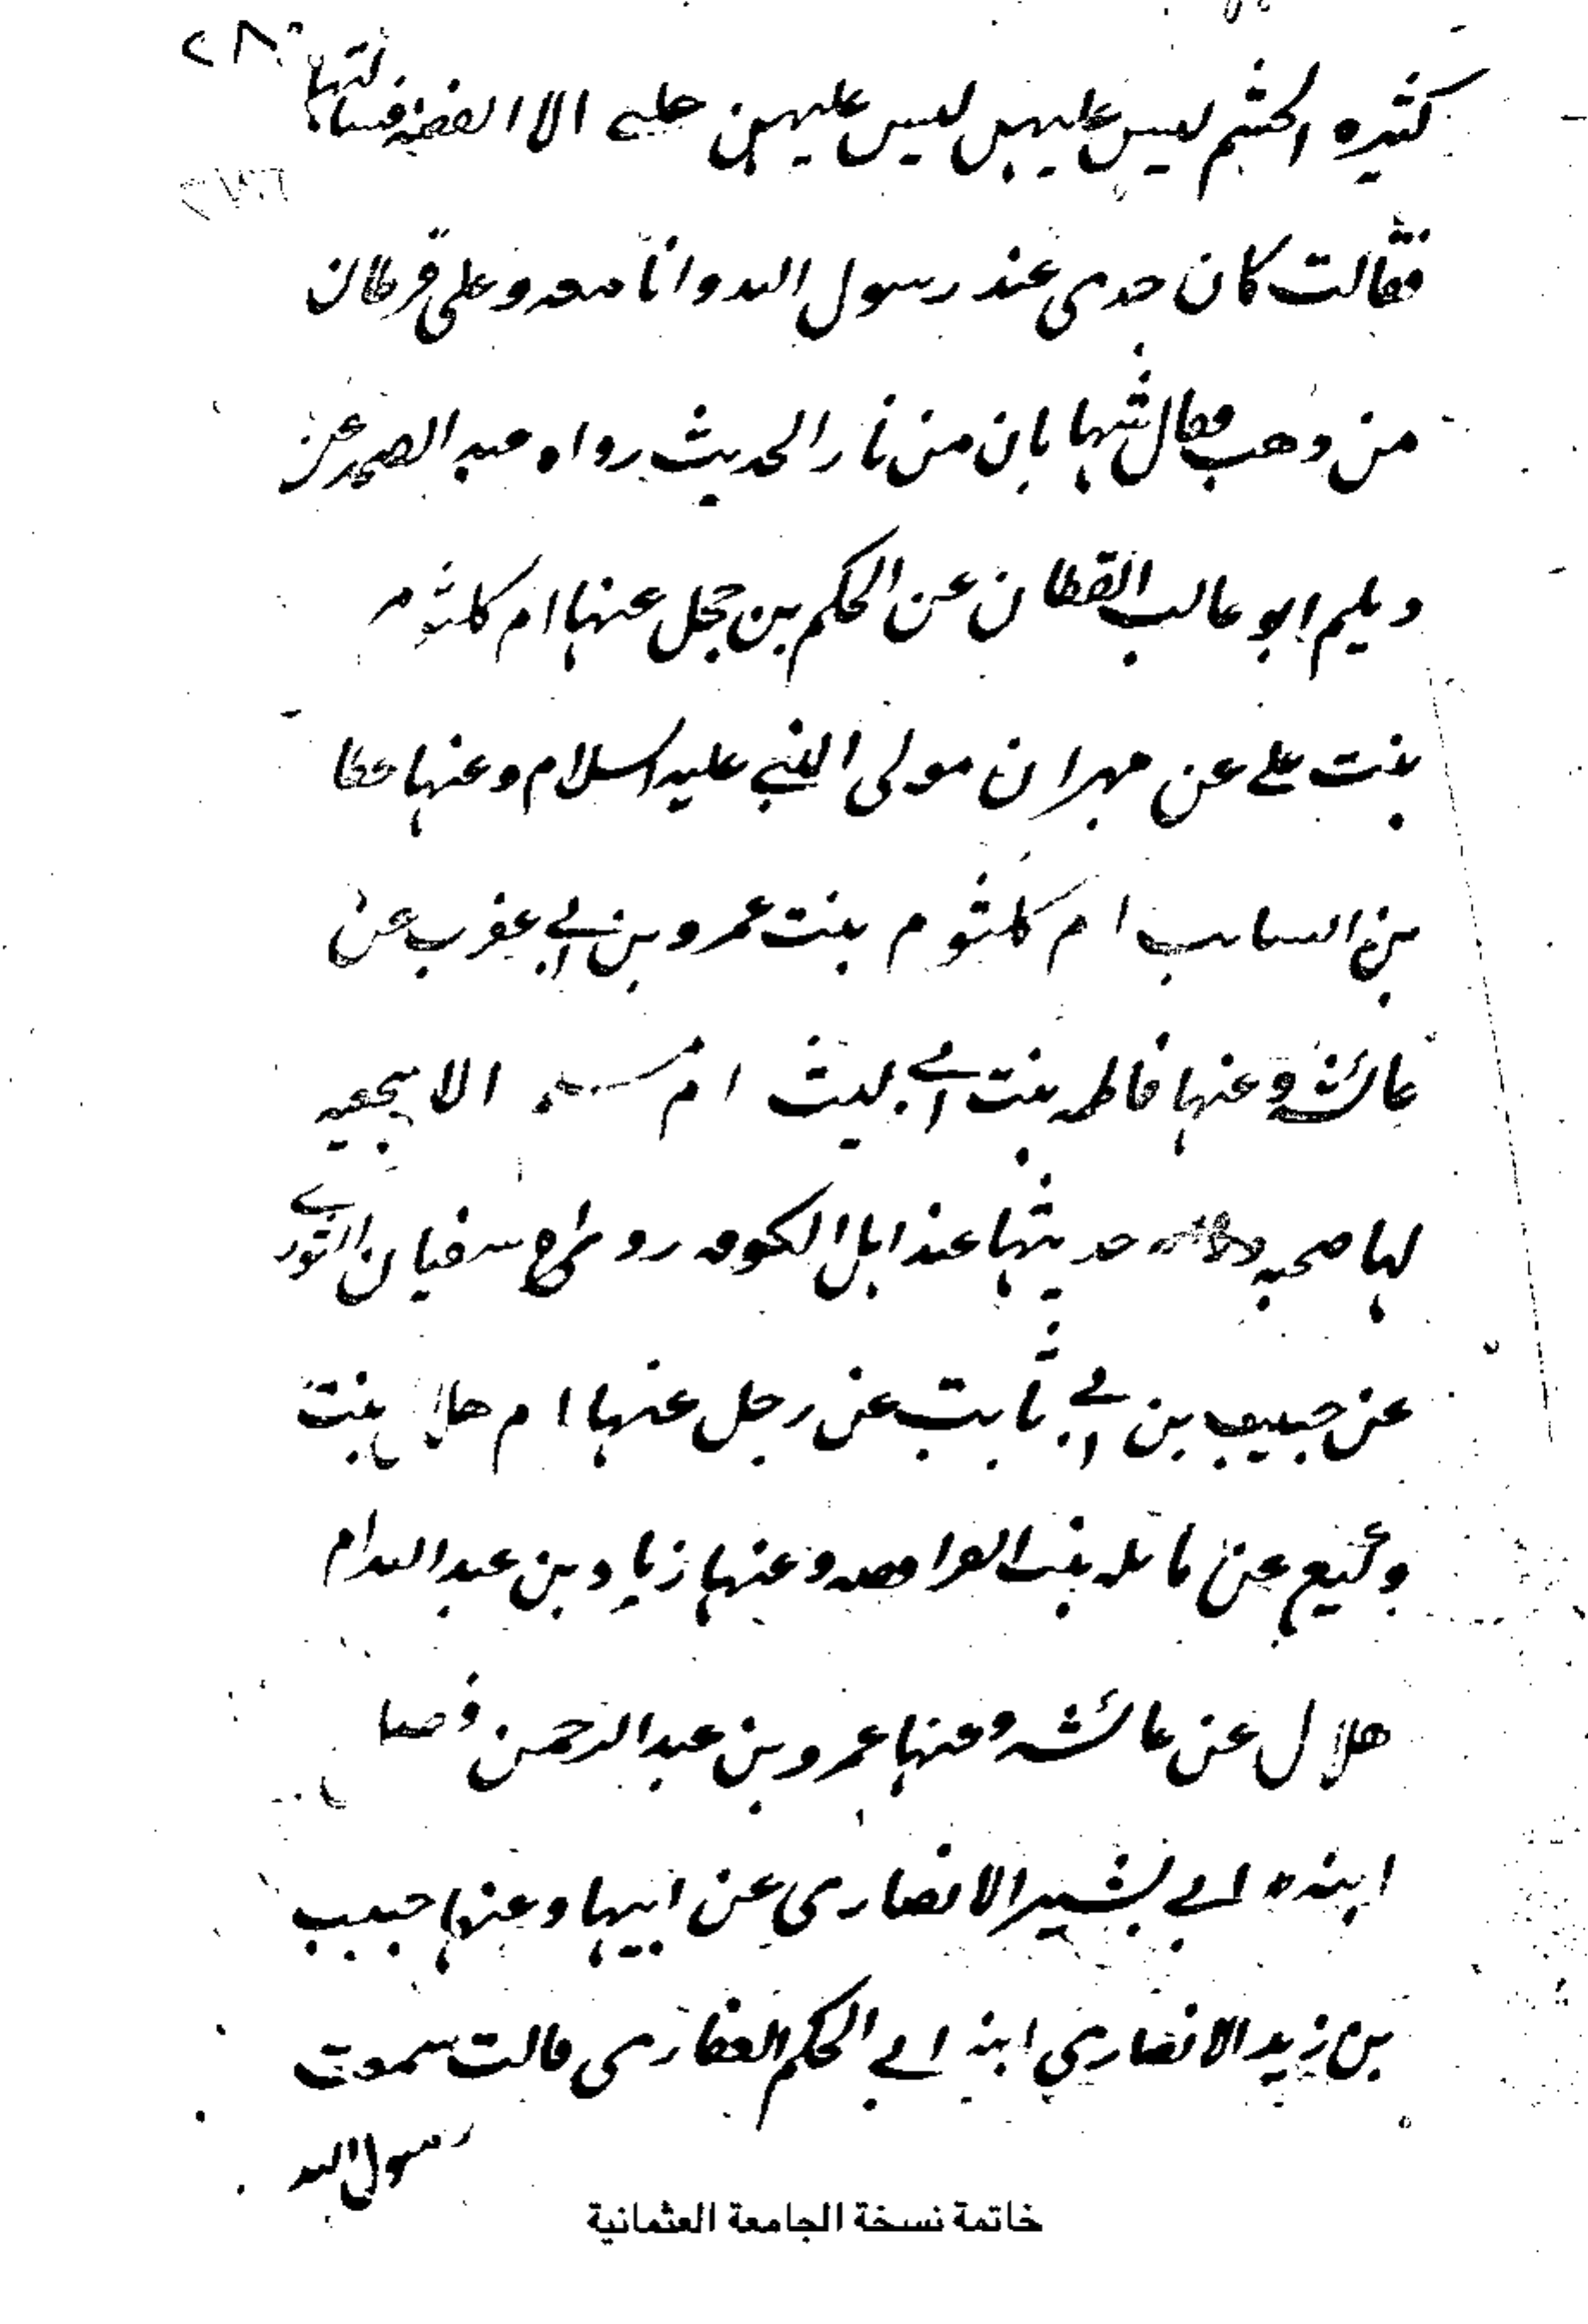 ٢٨٠
كثيره الحشم ليس عليهن ليس عليهن حلى الا الفضه فسالتها
فقالت كان جدى عند رسول الله وانا معه وعلى قرطان
من ذهب فقال شهابان من نار الحديث رواه عبد الصمد عن
ديلم ابو غالب القطان عن الحكم بن حجل عنها ام كلثوم
بنت على عن مهران مولى النبي عليه السلام وعنها عطا
بن السايب ام كلثوم بنت عمرو بن ابي عقرب عن
عائشه وعنها فاطمه بنت ابي ليث ام الاشجعيه
لها صحبه حديثها عند اهل الكوفه روى سفيان الثورى
عن حبيب بن ابي ثابت عن رجل عنها ام هلال بنت
وكيع عن نائله بنت الفرافصه وعنها زياد بن عبد الله ام
هلال عن عائشه وعنها عمرو بن عبد الرحمن
ابنة ابي بشير الانصارى عن ابيها وعنها حبيب
بن زيد الانصاري ابنة ابي الحكم الغفارى قالت سمعت
رسول الله
خاتمة نسخة الجامعة العثمانية